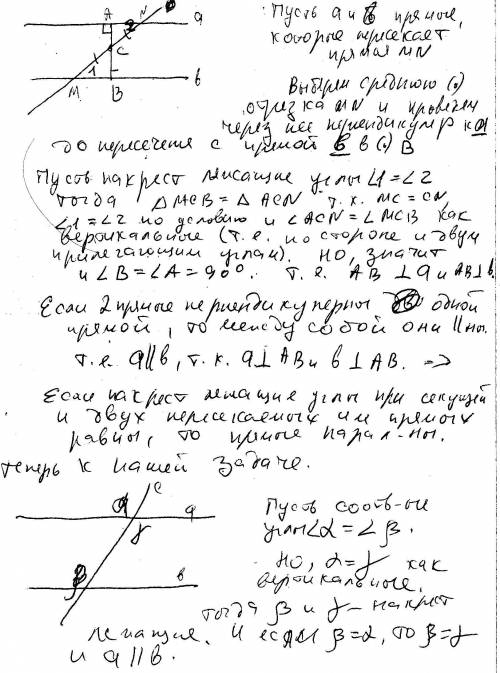 A N a
2
C
1
M B b
Пусть a и b прямые,
которые пересекает
прямая MN
Выберем середину (.)
отрезка MN и проведем
через нее перпендикуляр к a
до пересечения с прямой b в (.) B
Пусть накрест лежащие углы ∠1=∠2
тогда △MCB = △ACN т.к. MC = CN,
∠1=∠2 по условию и ∠ACN=∠MCB как
вертикальные (т.е. по стороне и двум
прилегающим углам). Но, значит
и ∠B=∠A=90°. т.е. AB ⊥ a и AB ⊥ b.
Если 2 прямые перпендикулярны одной
прямой, то между собой они ||ны.
т.е. a||b, т.к. a⊥AB и b⊥AB. =>
Если накрест лежащие углы при секущей
и двух пересекаемых им прямых
равны, то прямые парал-ны.
теперь к нашей задаче.
c
α a
γ
β b
Пусть соотв-ые
углы ∠α = ∠β.
Но, α=γ как
вертикальные,
тогда β и γ - накрест
лежащие. И если β=α, то β=γ
и a||b.